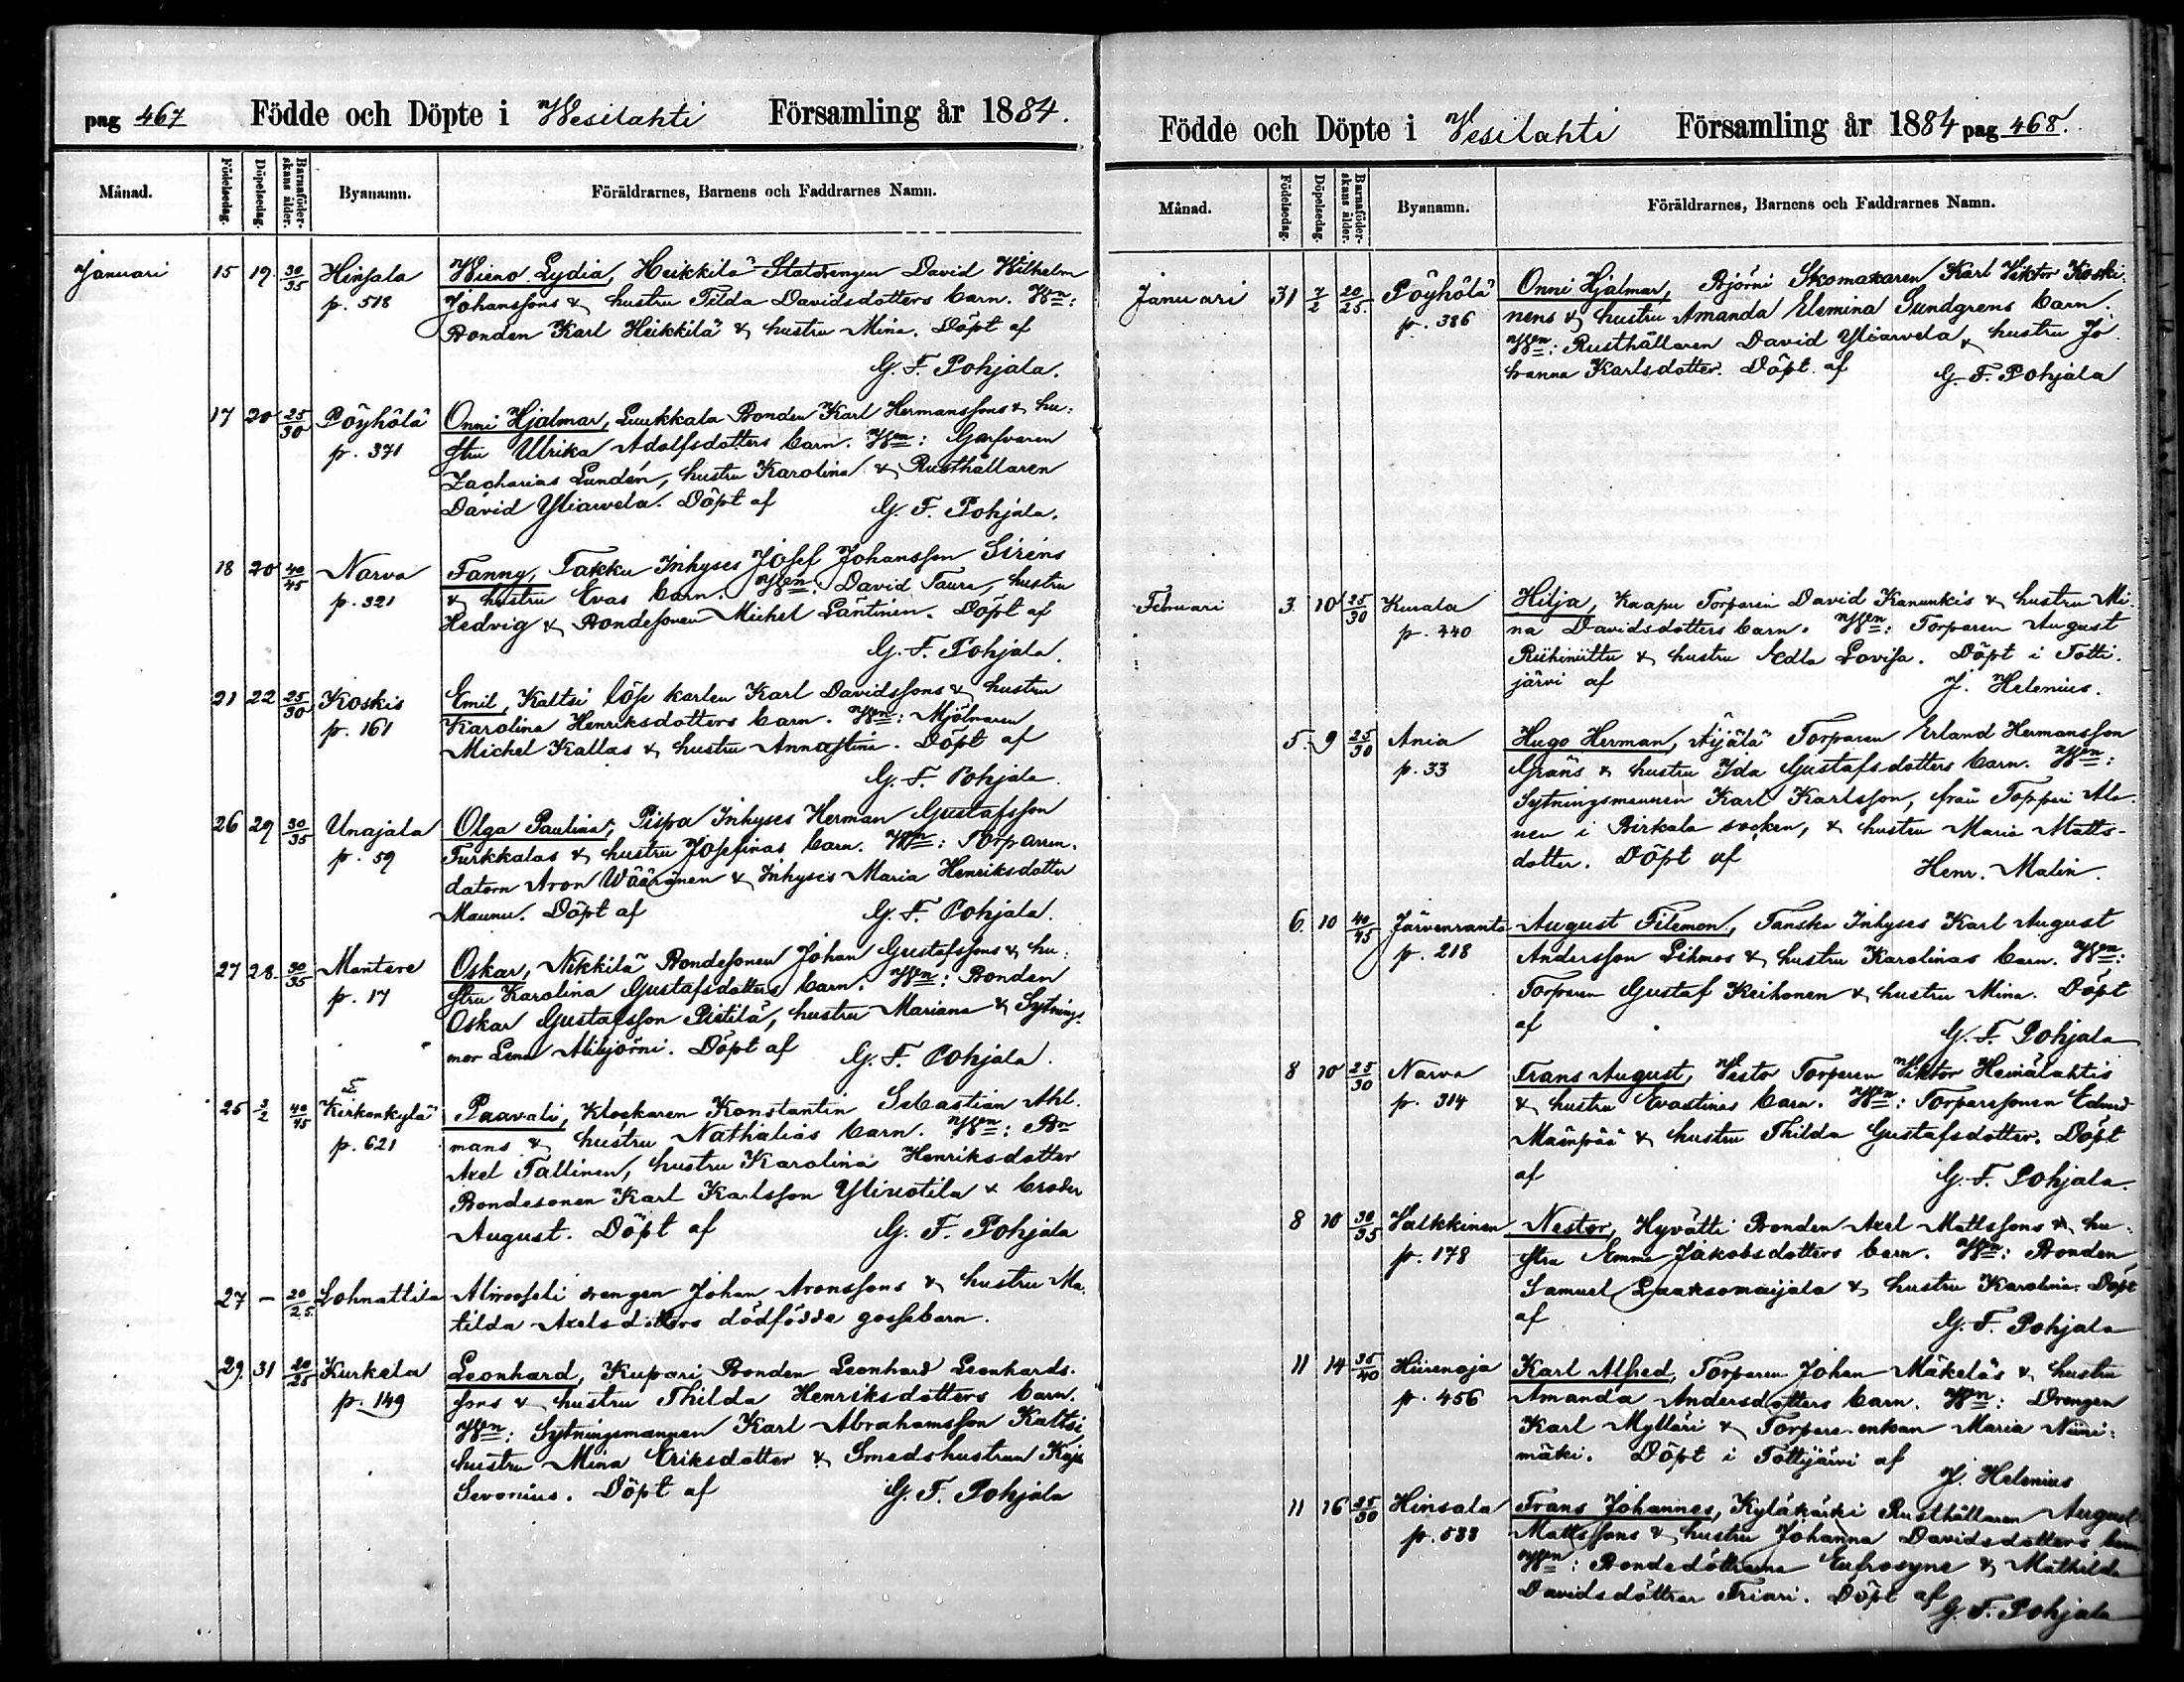 pag 467 Födde och Döpte i Wesilahti Församling år 1884.
Månad. Födelsedag. Döpelsedag. Barnaföderskans ålder. Byanamn. Föräldrarnes, Barnens och Faddrarnes Namn.
Januari 15 19. 30/35 Hinsala Wieno Lydia, Heikkilä Statdrengen David Wilhelm
p. 518 Johanssons & hustru Tilda Davidsdotters barn. Wn:
Bonden Karl Heikkilä & hustru Mina. Döpt af
G. F. Pohjala.
17 20 25/30 Pöyhölä Onni Hjalmar, Luukkala Bonden Karl Hermanssons & hu:
p. 371 stru Ulrika Adolfsdotters barn. Wen: Garfvaren
Zacharias Lundén, hustru Karolina & Rusthållaren
David Yliarvela. Döpt af G. F. Pohjala.
18 20 40/45 Narva Fanny, Takku Inhyses Josef Johansson Siréns
p. 321 & hustru Evas barn. Wen: David Taura, hustru
Hedvig & Bondesonen Michel Läntinen. Döpt af
G. F. Pohjala.
21 22 25/30 Koskis Emil, Kaltsi löse karlen Karl Davidssons & hustru
p. 161 Karolina Henriksdotters barn. Wen: Mjölnaren
Michel Kallas & hustru Annastina. Döpt af
G. F. Pohjala.
26 29 30/35 Unajala Olga Paulina, Pispa Inhyses Herman Gustafsson
p. 59 Turkkalas & hustru Josefinas barn. Wen: Torparren.
datorn Aron Wääränen & Inhyses Maria Henriksdotter
Maunu. Döpt af G. F. Pohjala.
27 28. 30/35 Mantere Oskar, Nikkilä Bondesonen Johan Gustafssons & hu:
p. 17 stru Karolina Gustafsdotters barn. Wen: Bonden
Oskar Gustafsson Pietilä, hustru Mariana & Sytnings
mor Lena Alibjörni. Döpt af G. F. Pohjala.
25 3/2 40/45 Kirkonkylä Paavali, Klockaren Konstantin Sebastian Ahl.
p. 621 mans & hustru Nathalias barn. Wen: Bn
Axel Tallinen, hustru Karolina Henriksdotter
Bondesonen Karl Karlsson Ylinotila & broder
August. Döpt af G. F. Pohjala
27 – 20/25 Lohnattila drengen Johan Aronssons & hustru Ma.
tilda Axelsdotters dödfödde gossebarn.
29. 31 20/25 Kurkela Leonhard, Kupari Bonden Leonhard Leonhards.
p. 149 sons & hustru Thilda Henriksdotters barn.
Wen: Sytningsmannen Karl Abrahamsson Kaltsi
hustru Mina Eriksdotter & Smedshustrun Kajs
Sevonius. Döpt af G. F. Pohjala
Födde och Döpte i Vesilahti Församling år 1884 pag 468.
Månad. Födelsedag. Döpelsedag. Barnaföderskans ålder. Byanamn. Föräldrarnes, Barnens och Faddrarnes Namn.
Januari 31 7/2 20/25. Pöyhölä Onni Hjalmar, Bjórni Skomakaren Karl Viktor Koski.
p. 386 nens & hustru Amanda Elemina Sundgrens barn.
Wen: Rusthållaren David Yliarvela & hustru Jo
hanna Karlsdotter. Döpt af G. F. Pohjala
Februari 3. 10 25/30 Kurala Hilja, Kaapu Torparen David Kanunkis & hustru Mi.
p. 240 na Davidsdotters barn. Wen: Torparen August
Riihiniittu & hustru Edla Lovisa. Döpt i Totti.
järvi af J. Helenius.
5. 9 25/30 Ania Hugo Herman, Äijälä Torparen Erland Hermansson
p. 33 Gräns & hustru Ida Gustafsdotters barn. Wen:
Sytningsmannen Karl Karlsson, från Topperi Ala
nen i Birkala socken, & hustru Maria Matts-
dotter. Döpt af Henr. Malin.
6. 10 40/45 Järvenranta August Filemon, Tanska Inhyses Karl August
p. 218 Andersson Lihmos & hustru Karolinas barn. Wen:
Torparen Gustaf Keihonen & hustru Mina. Döpt
af G. F. Pohjala
8 10 25/30 Narva Frans August, Vesto Torparen Viktor Heinälahtis
p. 314 & hustru Evastinas barn. Wen: Torparsonen Edvard
Mäenpää & hustru Thilda Gustafsdotter. Döpt
af G. F. Pohjala.
8 10 30/35 Halkkinen Nestor, Hyvätti Bonden Axel Mattssons & hu.
p. 178 stru Emma Jakobsdotters barn. Wen: Bonden
Samuel Laaksomaijala & hustru Karolina. Döpt
af G. F. Pohjala
11 14 35/40 Hiirenoja Karl Alfred, Torparen Johan Mäkeläs & hustru
p. 456 Amanda Andersdotters barn. Wen: Drengen
Karl Mylläri & Torpare-enkan Maria Niini:
mäki. Döpt i Tottijärvi af
J. Helenius
11 16 25/30 Hinsala Frans Johannes, Kyläkärki Rusthållaren August
p. 533 Mattssons & hustru Johanna Davidsdotters barn
Wen: Bondedöttrarna Eufrosyne & Mathilda
Davidsdöttrar Friari. Döpt af G. F. Pohjala